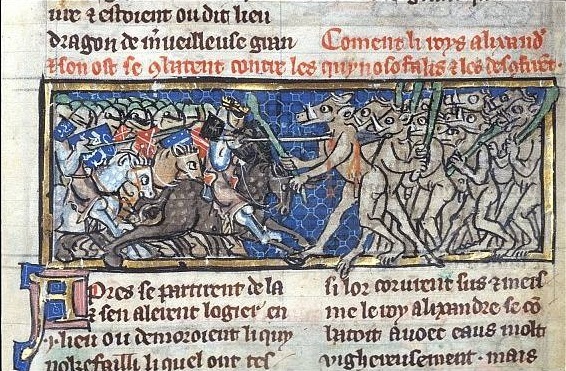 ure & estoient ou dit lieu
dragon de m̄ueilleuse gran
Coment li roys alixand'
& son ost se 9batent contre les quynosofalis & les desofiret.
Apres se partirent de la
& sen alerent logier en
.i. lieu ou demoroient li quy
nokefailli li quel ont tes
si lor coruirent sus & meis
me le roy alixandre se cō
batoit avoec eaus molt
vighereusement. mais